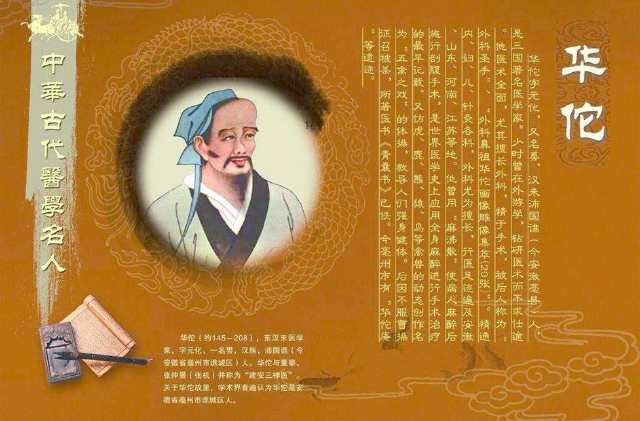 华佗
华佗字元化，又名旉，汉末沛国谯（今安徽亳县）人，
是三国著名医学家。少时曾在外游学，钻研医术而不求仕途
。他医术全面，尤其擅长外科，精于手术，被后人称为“
外科圣手”、“外科鼻祖华佗画像雕像集萃(29张)”。精通
内、妇、儿、针灸各科，外科尤为擅长，行医足迹遍及安徽
、山东、河南、江苏等地。他曾用“麻沸散”使病人麻醉后
施行剖腹手术，是世界医学史上应用全身麻醉进行手术治疗
的最早记载。又仿虎、鹿、熊、猿、鸟等禽兽的动态创作名
为“五禽之戏”的体操，教导人们强身健体。后因不服曹操
征召被杀，所著医书《青囊书》已佚。今亳州市有“华佗庵
”等遗迹。
中華古代醫學名人
华佗（约145－208），东汉末医学
家，字元化，一名旉，汉族，沛国谯（今
安徽省亳州市谯城区）人。华佗与董奉、
张仲景（张机）并称为“建安三神医”。
关于华佗故里，学术界普遍认为华佗是安
徽省亳州市谯城区人。